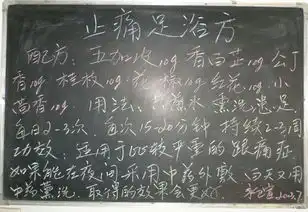 止痛足浴方
配方：五加皮10g 香白芷10g 公丁
香10g 桂枝10g 花椒10g 红花10g 小
茴香10g 用法：水 熏洗患足
每日2-3次，每次15-20分钟 持续2-3周
功效：适用于比较严重的跟痛症
如果能在夜间采用中药外敷，白天又用
中药熏洗，取得的效果会更好。